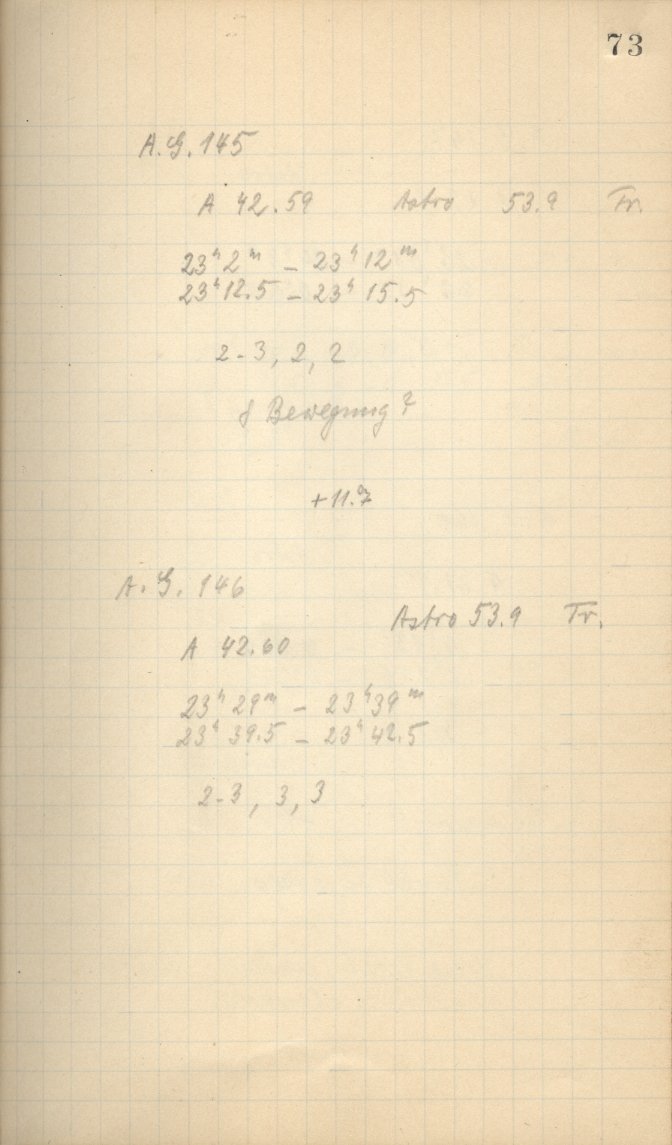 73
A.G. 145
A 42.59 Astro 53.9 Tr.
23ʰ 2ᵐ – 23ʰ 12ᵐ
23ʰ 12.5 – 23ʰ 15.5
2-3, 2, 2
Bewegung?
+11.7
A.G. 146
Astro 53.9 Tr.
A 42.60
23ʰ 29ᵐ – 23ʰ 39ᵐ
23ʰ 39.5 – 23ʰ 42.5
2-3, 3, 3